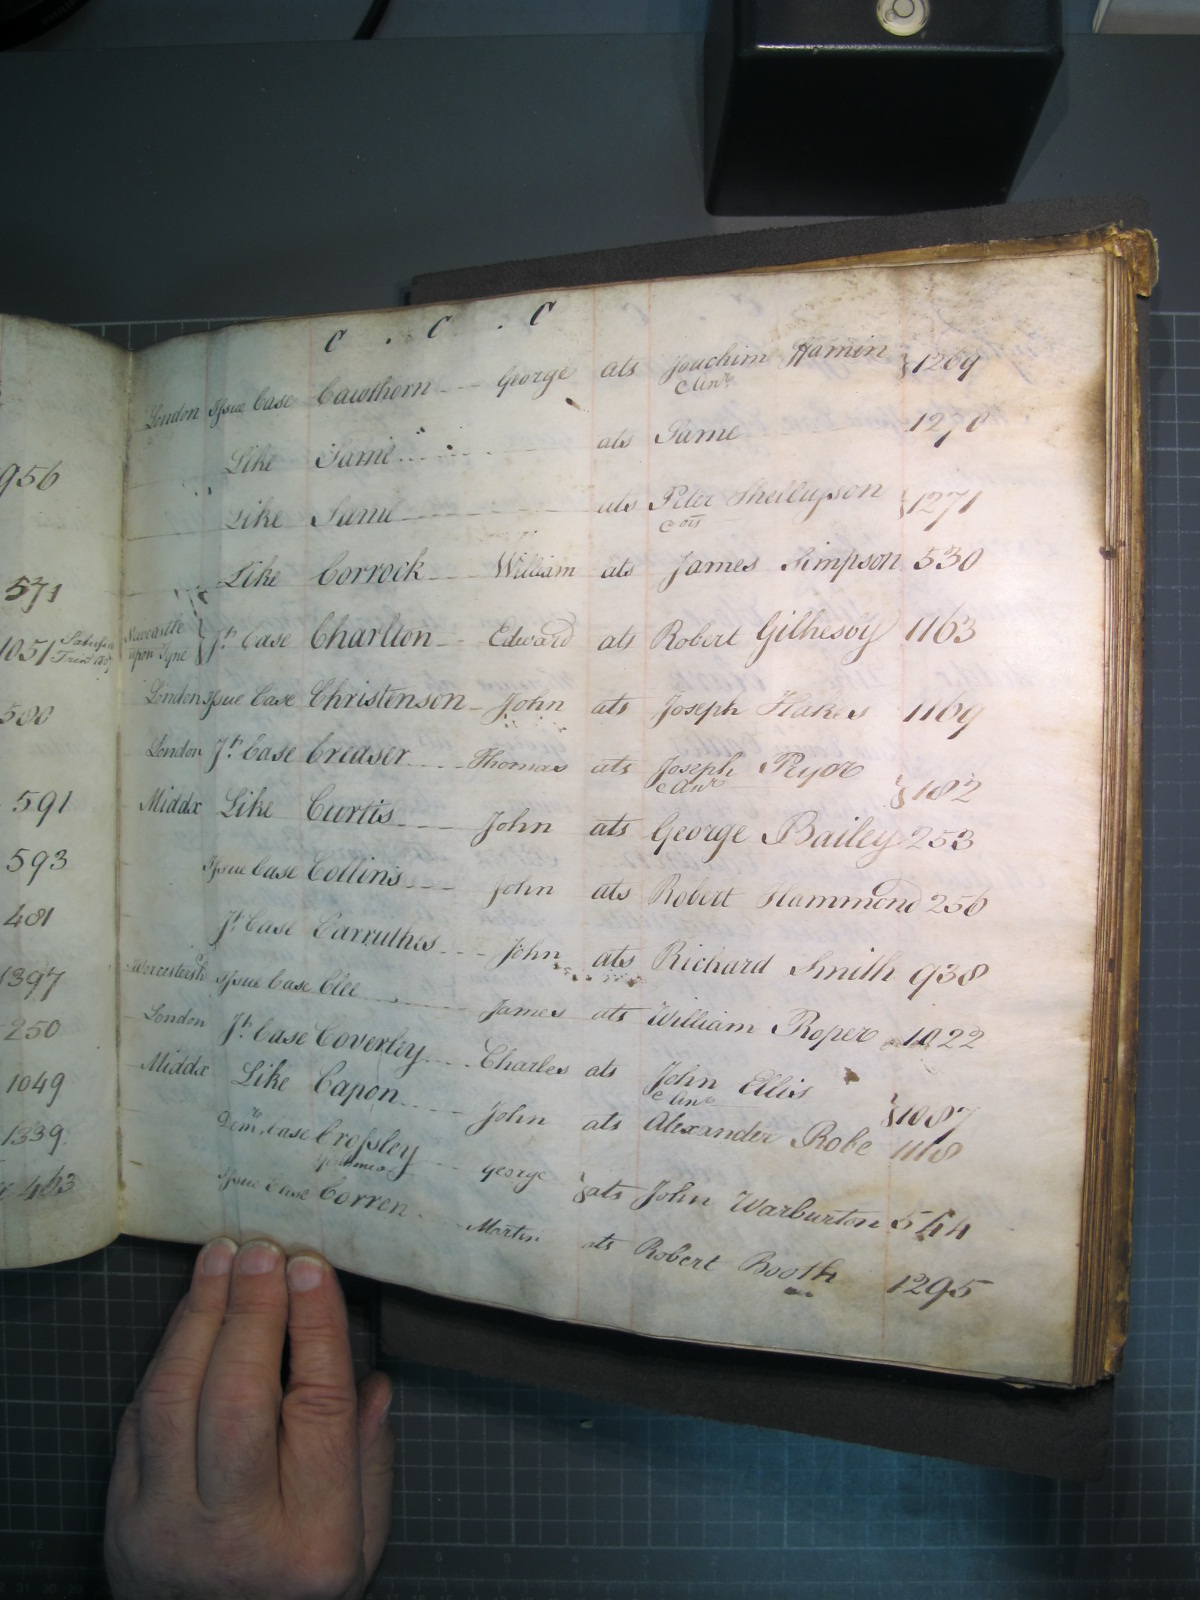 C . C . C
London Issue Case Cawthorn George ats Joachim Hamin & anr } 1269
Like Same ats Same 1270
Like Same ats Peter & ors } 1271
Like Corrock William ats James Simpson 530
Newcastle upon Tyne } Jt Case Charlton Edward ats Robert Gilhespy 1163
London Issue Case Christenson John ats Joseph Hakes 1169
London Jt Case Creaser Thomas ats Joseph Pryor & anr } 182
Middx Like Curtis John ats George Bailey 253
Issue Case Collins John ats Robert Hammond 256
Jt Case Carruthes John ats Richard Smith 938
Issue Case Clee James ats William Roper 1022
London Jt Case Coverley Charles ats John Ellis & anr } 1087
Middx Like Capon John ats Alexander Robe 1118
Demr Case Crossley George } ats John Warburton 544
Issue Case Corren Martin ats Robert Booth 1295
956
571
1051
500
591
593
481
1397
250
1049
1339
463